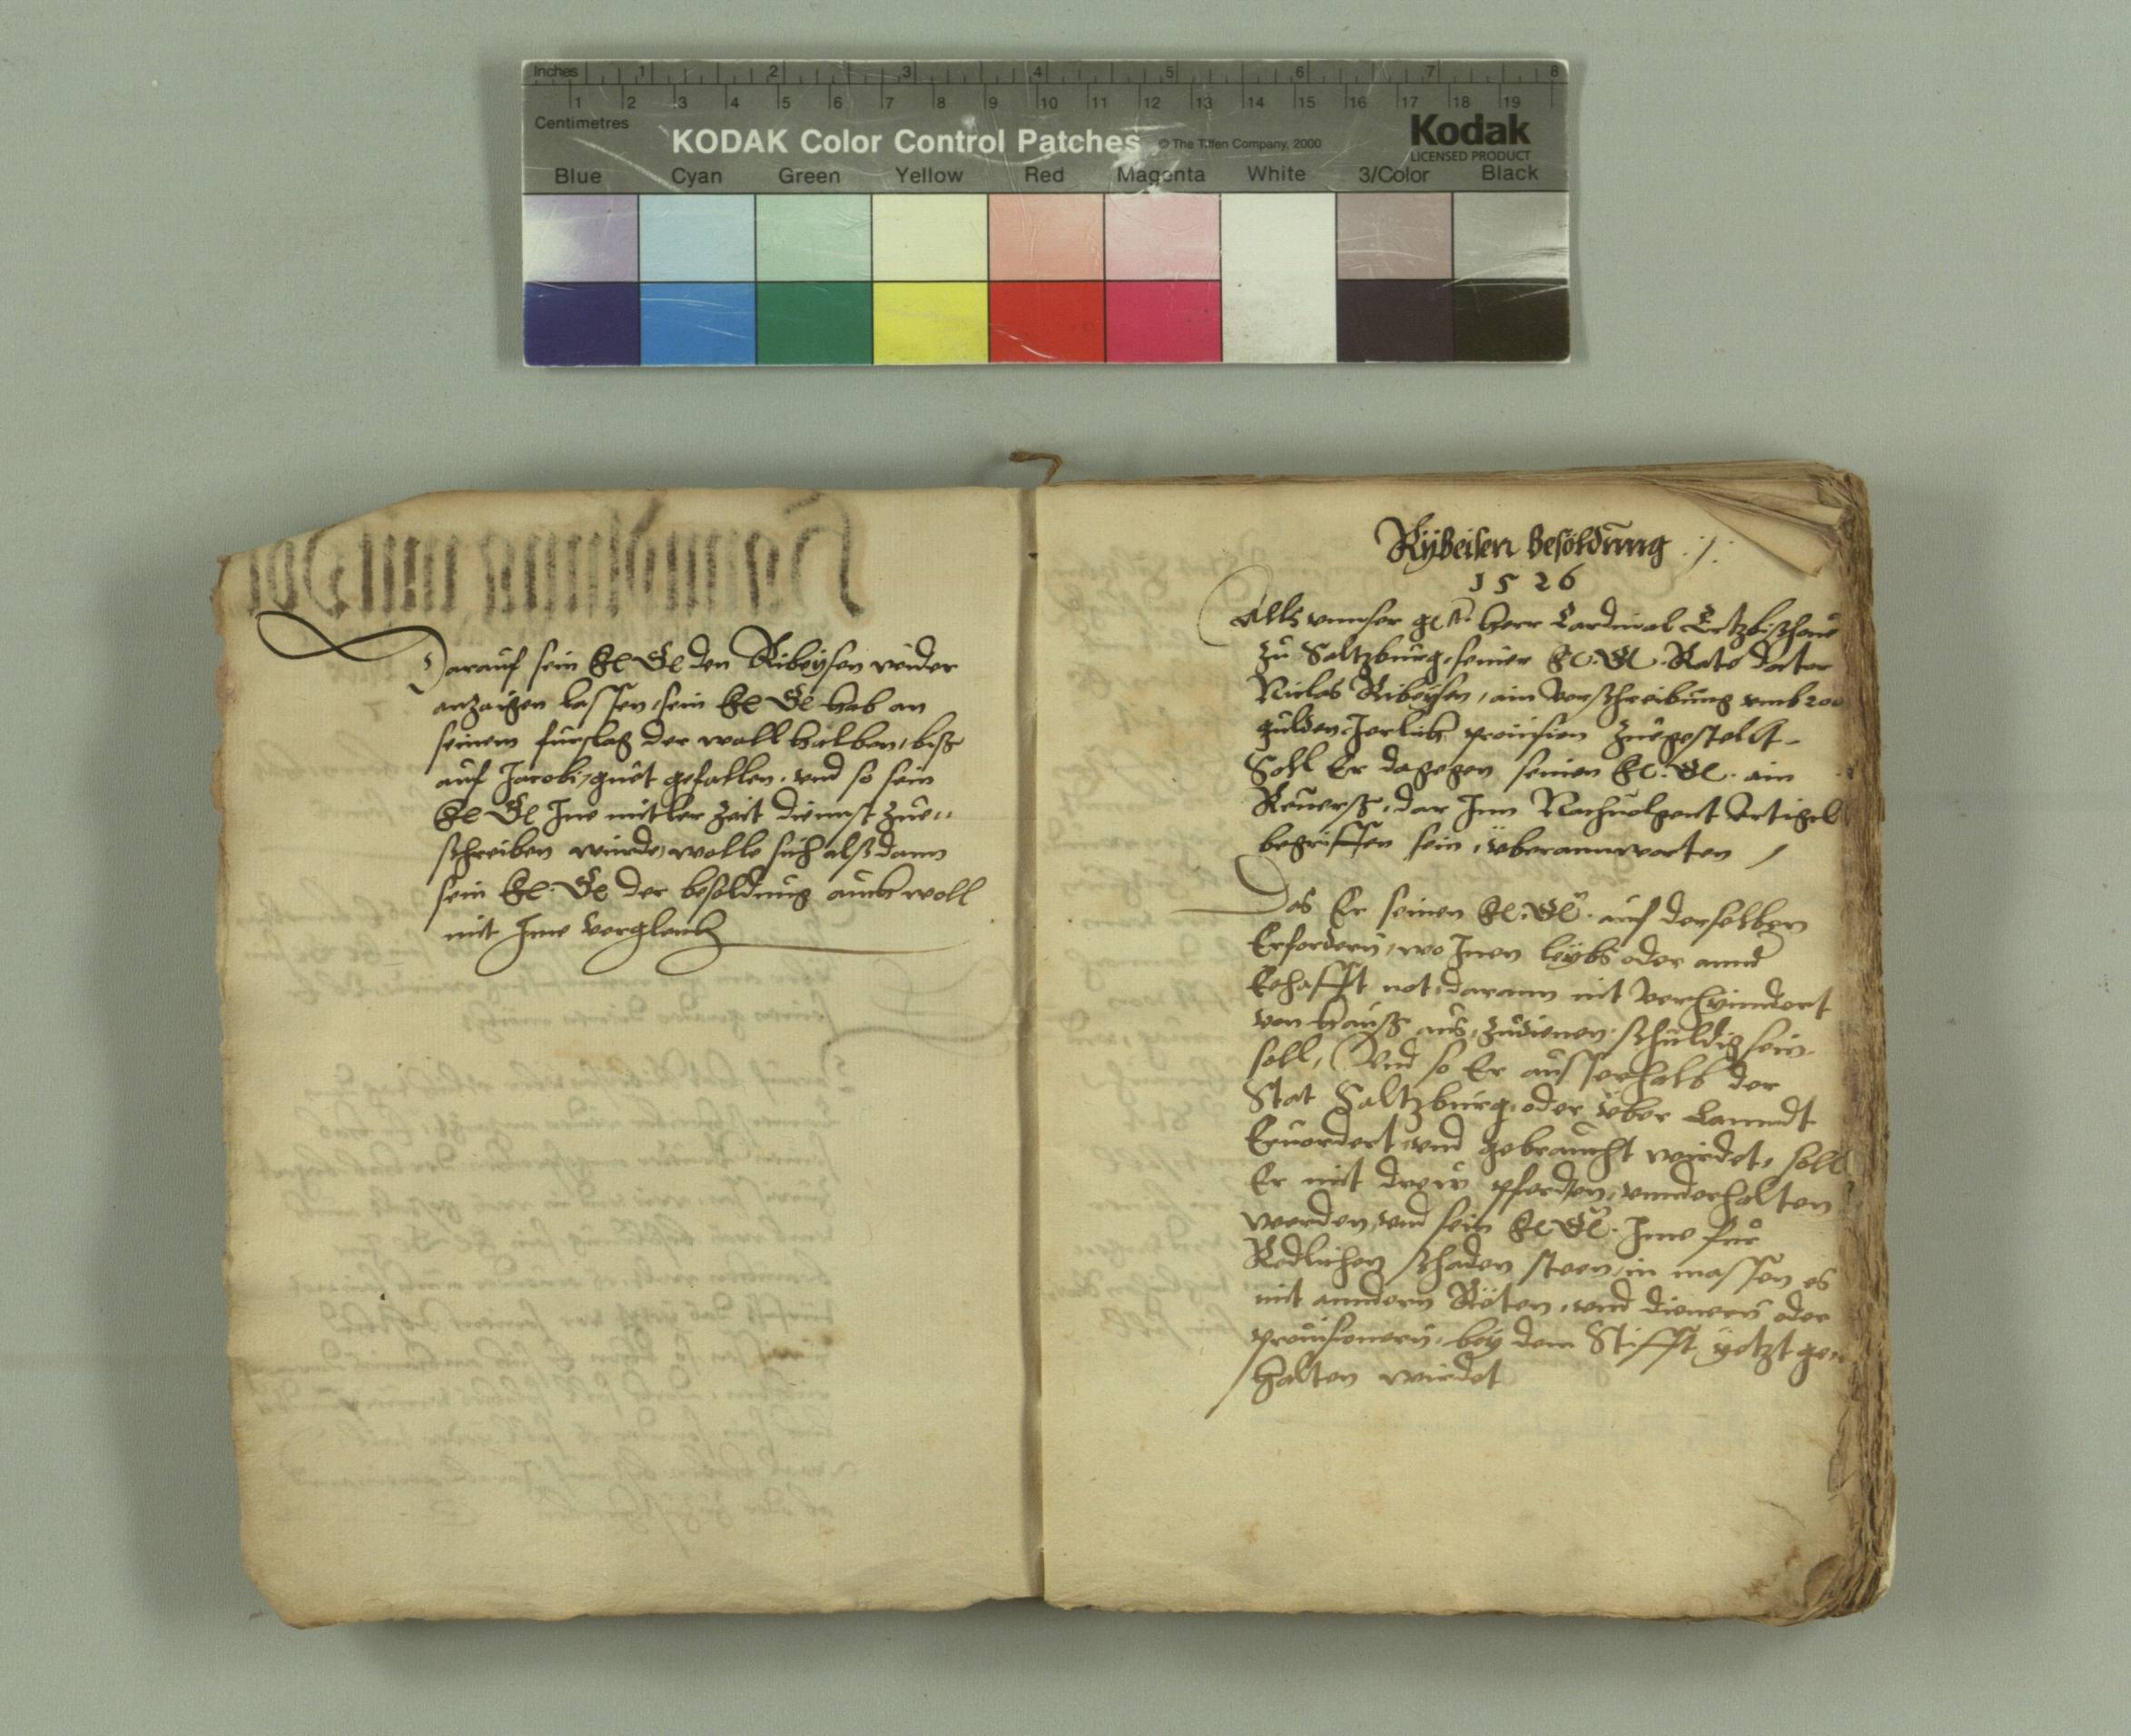 Inches 1 2 3 4 5 6 7 8
1 2 3 4 5 6 7 8 9 10 11 12 13 14 15 16 17 18 19
Centimetres
KODAK Color Control Patches © The Tiffen Company, 2000 Kodak
LICENSED PRODUCT
Blue Cyan Green Yellow Red Magenta White 3/Color Black
Darauf sein Fl Gl den Ribeysen wider
anzaigen lassen, sein Fl Gl hab an
seinem furslag der wall halben, biß
auf Jacobi, guet gefallen. vnd so sein
Fl Gl Ine mitler zeit diennst zue„
schreiben wurde, wolle sich alßdann
sein Fl. Gl der besoldung auch woll
mit Ime vergleich
Rÿbeisen besoldung ./.
1526
Alls vnnser gst. Herr Cardinal Ertzbischoue
zu Saltzburg, seiner Fl. Gl. Rate doctor
Niclas Ribeysen, ain Verschreibung vmb 200
gulden Jerlich prouision zuegestellt
Soll Er dagegen seinen Fl. Gl. ain
Reuerß, dar Inn Nachuolgent Artigel
begriffen sein, vberannworten /
Das Er seinen Fl. Gl. auf derselben
Erfordern, wo Inen leÿbs oder annd
Eehafft not, daran nit verhinndert
von hauß aus, zudienen schuldig sein
soll, Vnd so Er ausserhalb der
Stat Saltzburg, oder vber Lanndt
Eruordert, vnd gebraucht wirdet, soll
Er mit dreÿ pferden, vnnderhalten
werden, vnd sein Fl Gl. Ime fur
Redlichen schaden steen, in massen es
mit anndern Räten, vnd dienern oder
prouisonern, bey dem Stifft yetzt ge„
halten wirdet